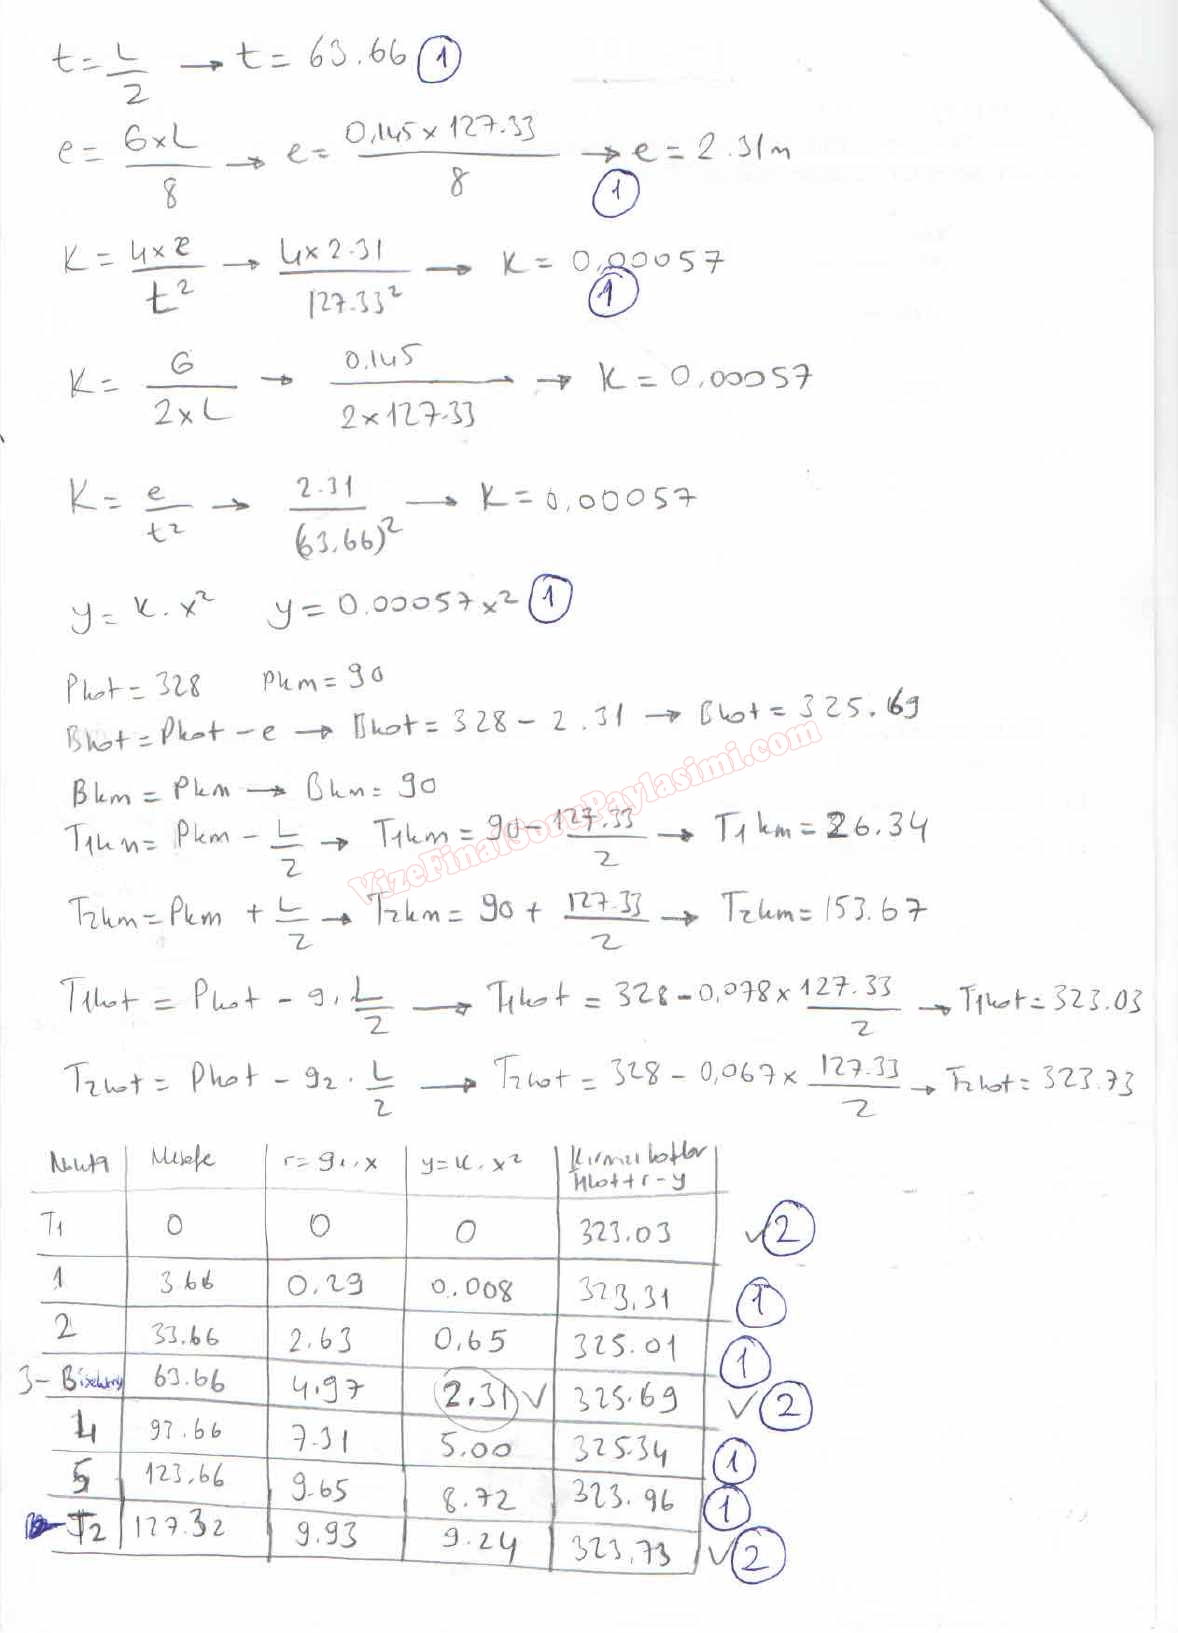 t = L/2 → t = 63.66 ①
e = G×L/8 → e = 0,145×127.33/8 → e = 2.31m ①
K = 4×e/t² → 4×2.31/127.33² → K = 0,00057 ①
K = G/2×L → 0.145/2×127.33 → K = 0,00057
K = e/t² → 2.31/(63.66)² → K = 0,00057
y = K.x² y = 0.00057x² ①
Pkot = 328 Pkm = 90
Bkot = Pkot - e → Bkot = 328 - 2.31 → Bkot = 325.69
Bkm = Pkm → Bkm = 90
T1km = Pkm - L/2 → T1km = 90 - 127.33/2 → T1km = 26.34
T2km = Pkm + L/2 → T2km = 90 + 127.33/2 → T2km = 153.67
T1kot = Pkot - g1.L/2 → T1kot = 328 - 0,078×127.33/2 → T1kot = 323.03
T2kot = Pkot - g2.L/2 → T2kot = 328 - 0,067×127.33/2 → T2kot = 323.73
VizeFinalSoruPaylasimi.com
Nokta Mesafe r=g1.x y=K.x² Kırmızı kotlar
T1kot+r-y
T1 0 0 0 323.03 ✓②
1 3.66 0.29 0.008 323,31 ①
2 33.66 2.63 0,65 325.01 ①
3- 63.66 4.97 2.31✓ 325.69 ✓②
4 93.66 7.31 5.00 325.34 ①
5 123.66 9.65 8.72 323.96 ①
T2 127.32 9.93 9.24 323,73 ✓②